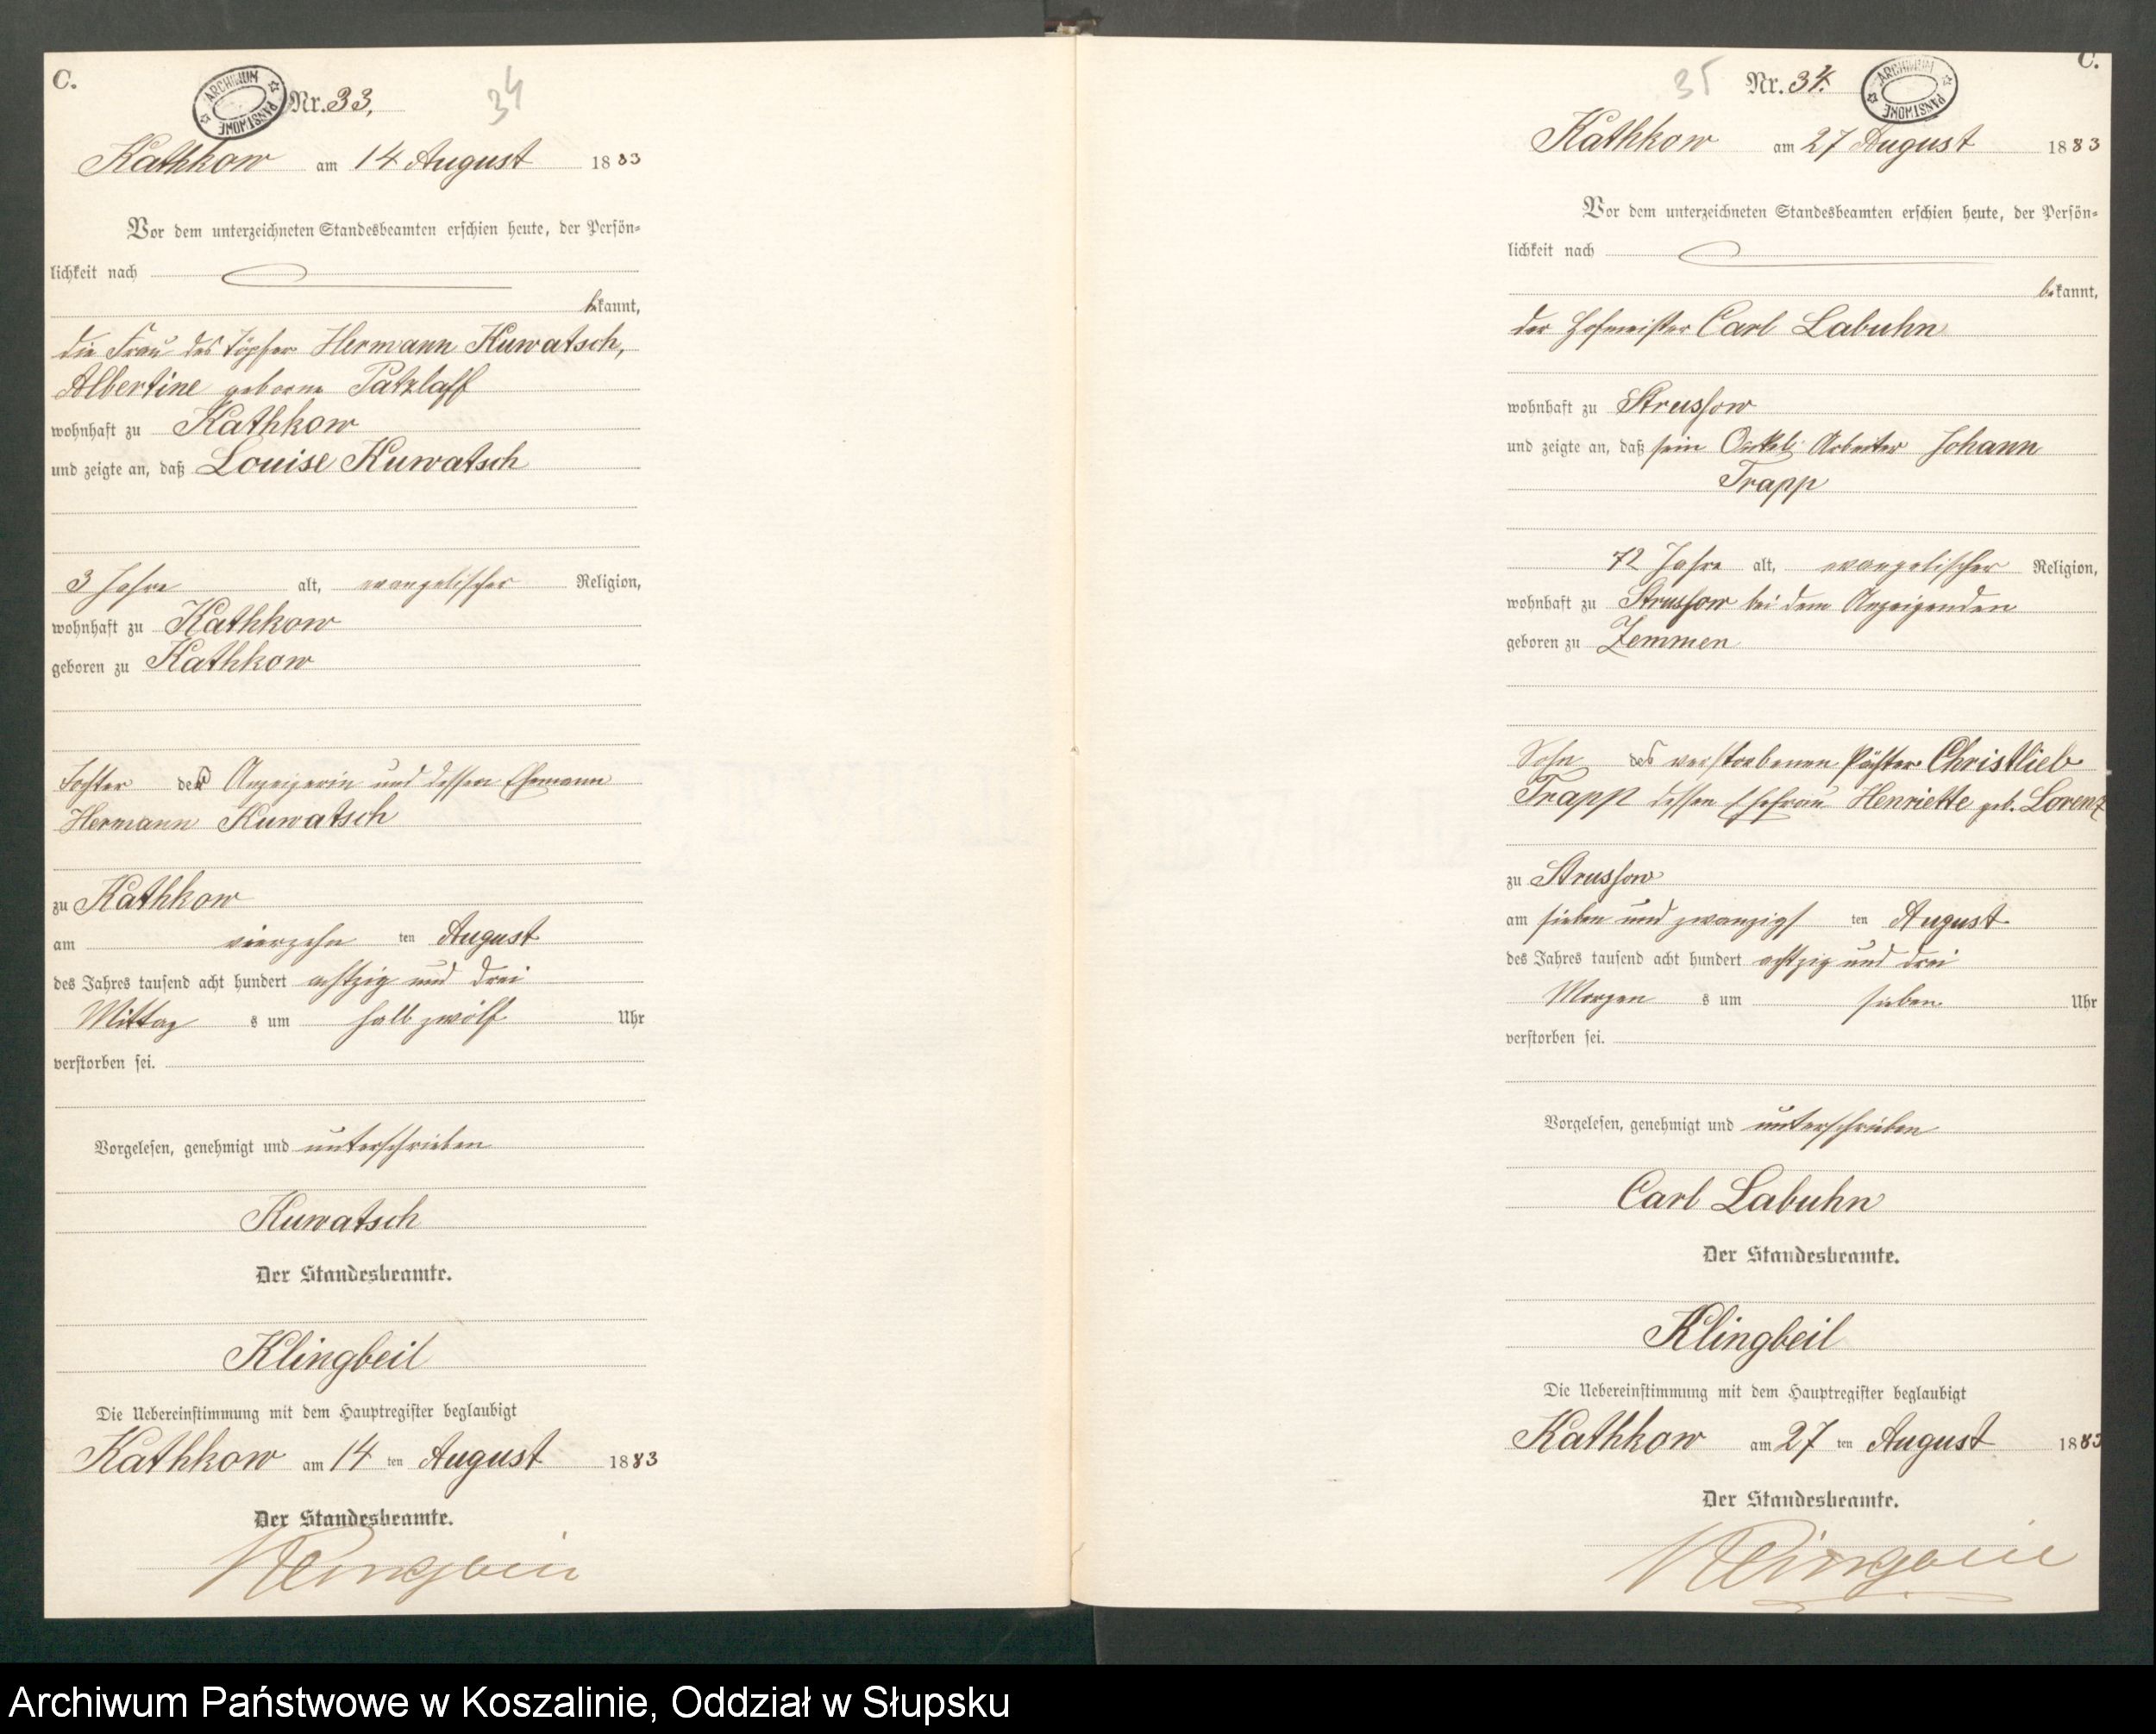 C.
ARCHIWUM PAŃSTWOWE
Nr. 33.
34
Kathkow am 14 August 1883
Vor dem unterzeichneten Standesbeamten erschien heute, der Persön-
lichkeit nach
bekannt,
die Frau des Töpfer Hermann Kuwatsch,
Albertine geborne Patzlaff
wohnhaft zu Kathkow
und zeigte an, daß Louise Kuwatsch
3 Jahre alt, evangelischer Religion,
wohnhaft zu Kathkow
geboren zu Kathkow
Tochter der Anzeigerin und dessen Ehemann
Hermann Kuwatsch
zu Kathkow
am vierzehn ten August
des Jahres tausend acht hundert achtzig und drei
Mittag s um halb zwölf Uhr
verstorben sei.
Vorgelesen, genehmigt und unterschrieben
Kuwatsch
Der Standesbeamte.
Klingbeil
Die Uebereinstimmung mit dem Hauptregister beglaubigt
Kathkow am 14 ten August 1883
Der Standesbeamte.
Klingbeil
C.
35
Nr. 34.
ARCHIWUM PAŃSTWOWE
Kathkow am 27 August 1883
Vor dem unterzeichneten Standesbeamten erschien heute, der Persön-
lichkeit nach
bekannt,
der Hofmeister Carl Labuhn
wohnhaft zu Strussow
und zeigte an, daß sein Onkel Arbeiter Johann
Trapp
72 Jahre alt, evangelischer Religion,
wohnhaft zu Strussow bei dem Anzeigenden
geboren zu Zemmen
Sohn des verstorbenen Pächter Christlieb
Trapp dessen Ehefrau Henriette geb. Lorenz
zu Strussow
am sieben und zwanzigs ten August
des Jahres tausend acht hundert achtzig und drei
Morgen s um sieben Uhr
verstorben sei.
Vorgelesen, genehmigt und unterschrieben
Carl Labuhn
Der Standesbeamte.
Klingbeil
Die Uebereinstimmung mit dem Hauptregister beglaubigt
Kathkow am 27 ten August 1883
Der Standesbeamte.
Klingbeil
Archiwum Państwowe w Koszalinie, Oddział w Słupsku